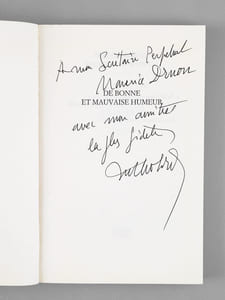 A mon Secrétaire Perpétuel
Maurice Druon
DE BONNE
ET MAUVAISE HUMEUR
avec mon amitié
la plus fidèle